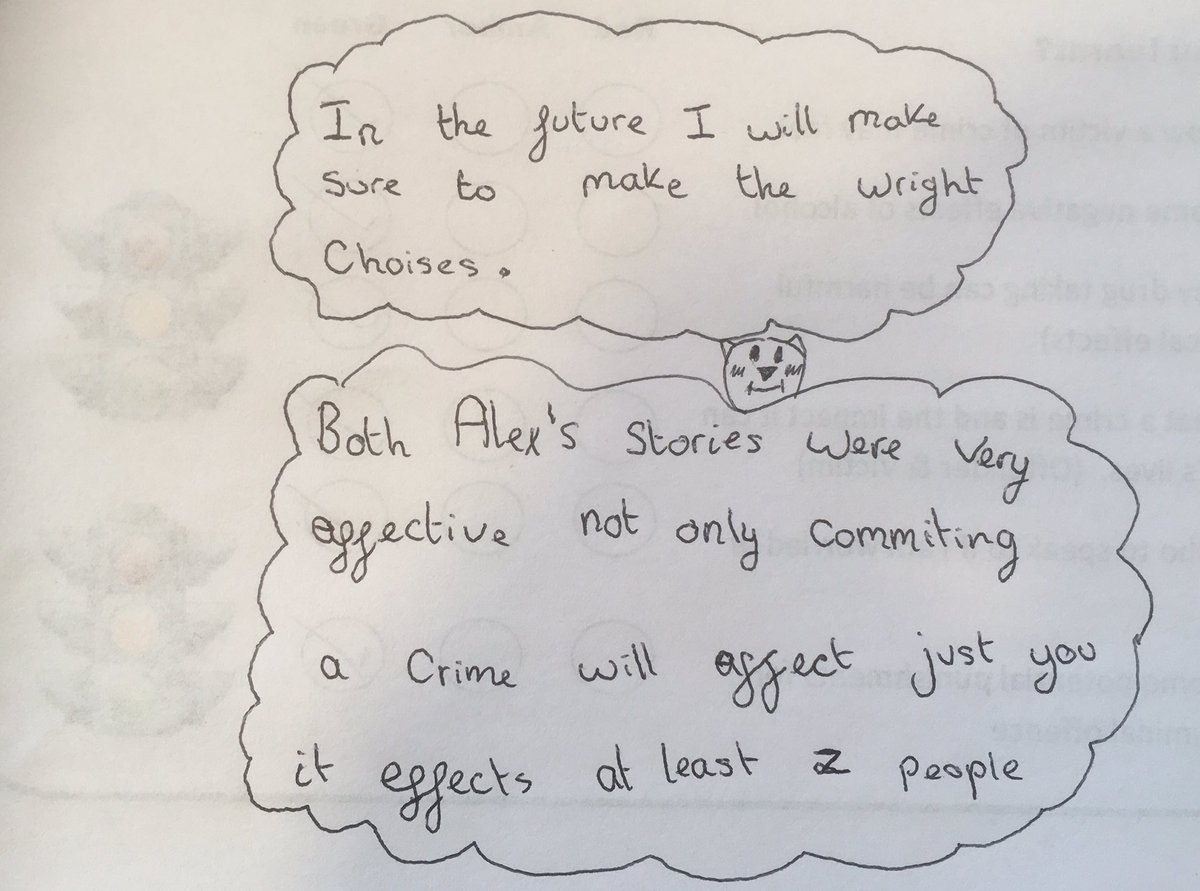 In the future I will make
sure to make the wright
Choises.
Both Alex's stories were very
effective not only commiting
a crime will affect just you
it effects at least 2 people